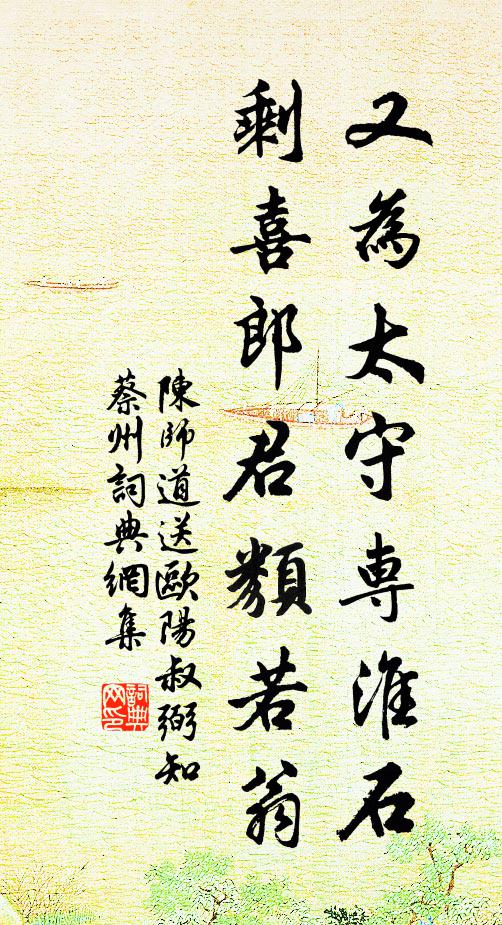 又為太守専淮石
剩喜郎君類若翁
陳師道送歐陽叔弼知
蔡州詞典網集
詞典
网印